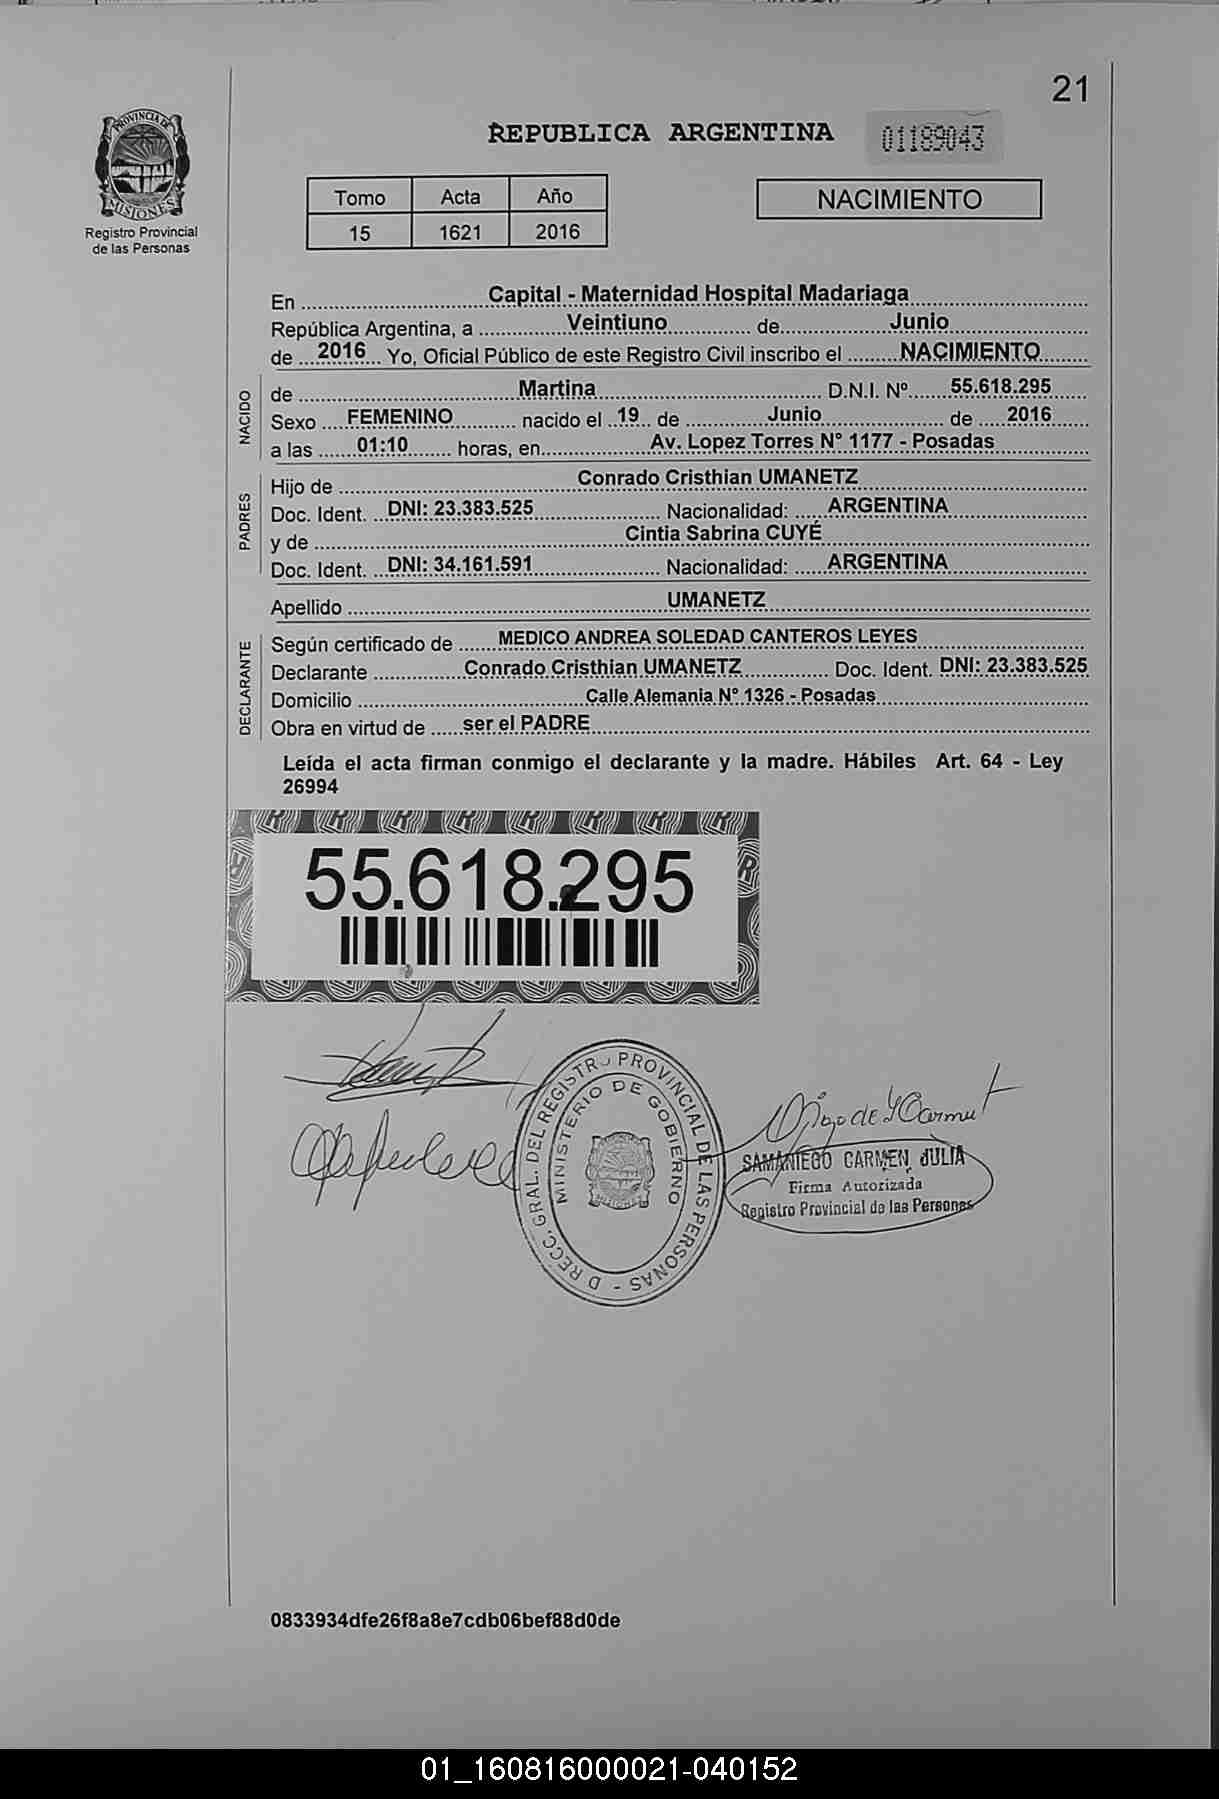 21
PROVINCIA DE
MISIONES
Registro Provincial
de las Personas
REPUBLICA ARGENTINA
01189043
Tomo Acta Año
15 1621 2016
NACIMIENTO
En Capital - Maternidad Hospital Madariaga
República Argentina, a Veintiuno de Junio
de 2016 Yo, Oficial Público de este Registro Civil inscribo el NACIMIENTO
NACIDO
de Martina D.N.I. Nº 55.618.295
Sexo FEMENINO nacido el 19 de Junio de 2016
a las 01:10 horas, en Av. Lopez Torres N° 1177 - Posadas
PADRES
Hijo de Conrado Cristhian UMANETZ
Doc. Ident. DNI: 23.383.525 Nacionalidad: ARGENTINA
y de Cintia Sabrina CUYÉ
Doc. Ident. DNI: 34.161.591 Nacionalidad: ARGENTINA
Apellido UMANETZ
DECLARANTE
Según certificado de MEDICO ANDREA SOLEDAD CANTEROS LEYES
Declarante Conrado Cristhian UMANETZ Doc. Ident. DNI: 23.383.525
Domicilio Calle Alemania N° 1326 - Posadas
Obra en virtud de ser el PADRE
Leída el acta firman conmigo el declarante y la madre. Hábiles Art. 64 - Ley
26994
55.618.295
D RECC. GRAL. DEL REGISTRO PROVINCIAL DE LAS PERSONAS -
MINISTERIO DE GOBIERNO
SAMANIEGO CARMEN JULIA
Firma Autorizada
Registro Provincial de las Personas
0833934dfe26f8a8e7cdb06bef88d0de
01_160816000021-040152